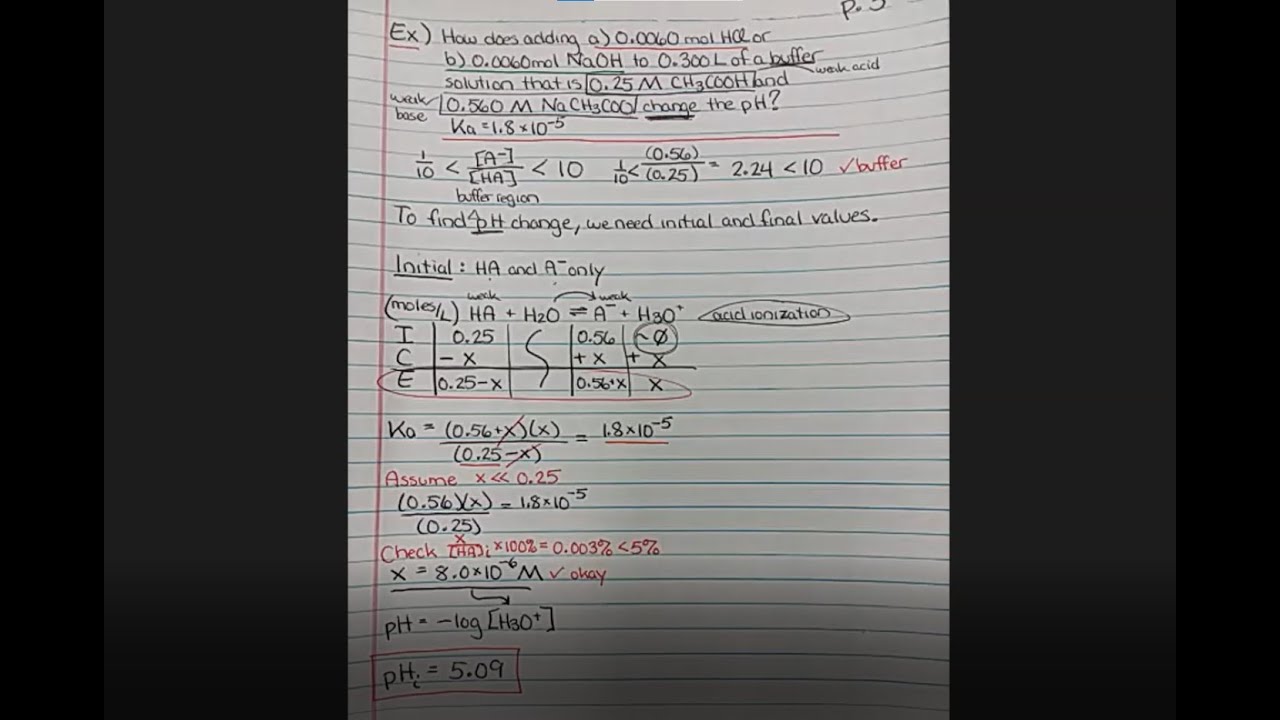 p. 3
Ex.) How does adding a) 0.0060 mol HCl or
b) 0.0060 mol NaOH to 0.300 L of a buffer
weak acid
solution that is 0.25 M CH3COOH and
weak base
0.560 M NaCH3COO change the pH?
Ka = 1.8×10⁻⁵
1/10 < [A⁻]/[HA] < 10 1/10 < (0.56)/(0.25) = 2.24 < 10 ✓buffer
buffer region
To find pH change, we need initial and final values.
Initial: HA and A⁻ only
weak weak
(moles/L) HA + H2O ⇌ A⁻ + H3O⁺ acid ionization
I 0.25 0.56 ~∅
C - x + x + x
E 0.25-x 0.56+x x
Ka = (0.56+x)(x)/(0.25-x) = 1.8×10⁻⁵
Assume x << 0.25
(0.56)(x)/(0.25) = 1.8×10⁻⁵
Check x/[HA]i ×100% = 0.003% < 5%
x = 8.0×10⁻⁶ M ✓ okay
pH = -log [H3O⁺]
pHi = 5.09